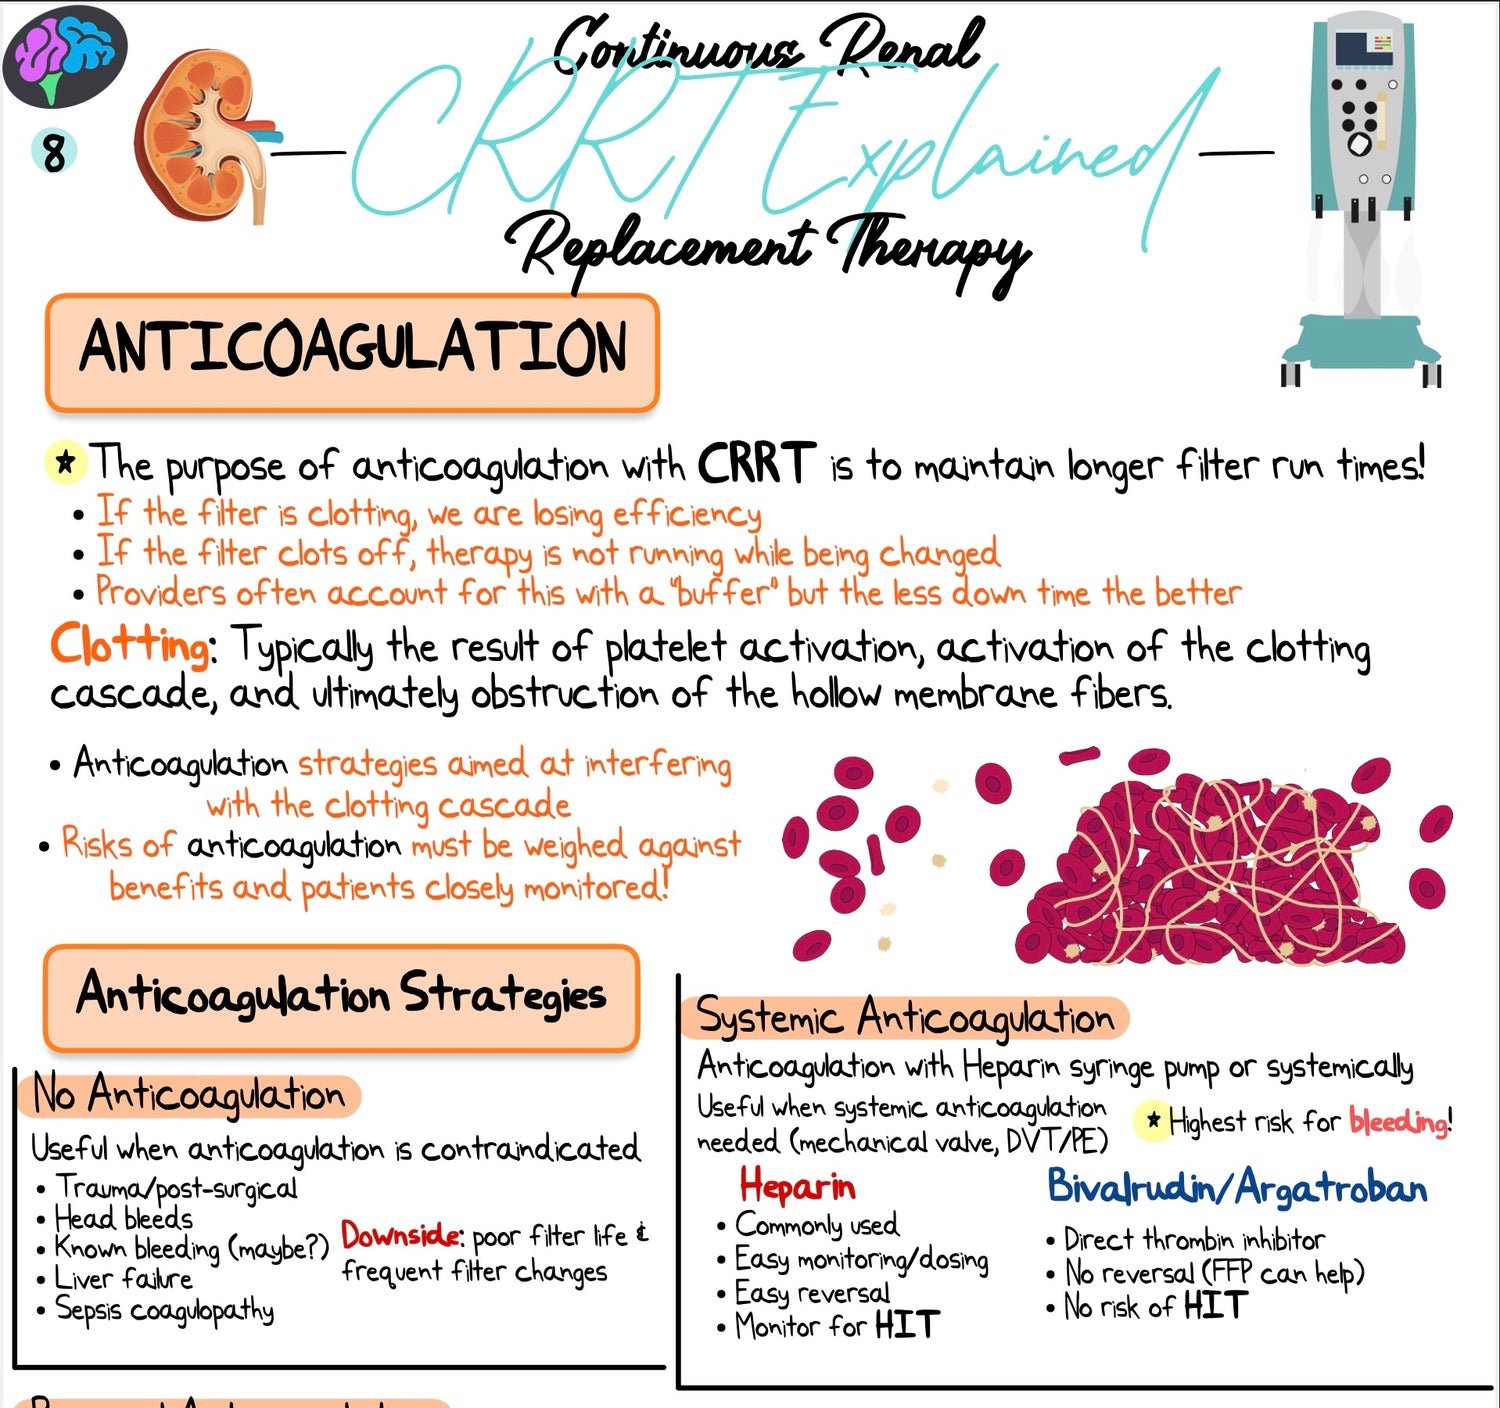 Continuous Renal
CRRT Explained
Replacement Therapy
8
ANTICOAGULATION
★ The purpose of anticoagulation with CRRT is to maintain longer filter run times!
• If the filter is clotting, we are losing efficiency
• If the filter clots off, therapy is not running while being changed
• Providers often account for this with a "buffer" but the less down time the better
Clotting: Typically the result of platelet activation, activation of the clotting
cascade, and ultimately obstruction of the hollow membrane fibers.
• Anticoagulation strategies aimed at interfering
with the clotting cascade
• Risks of anticoagulation must be weighed against
benefits and patients closely monitored!
Anticoagulation Strategies
No Anticoagulation
Useful when anticoagulation is contraindicated
• Trauma/post-surgical
• Head bleeds
• Known bleeding (maybe?)
• Liver failure
• Sepsis coagulopathy
Downside: poor filter life &
frequent filter changes
Systemic Anticoagulation
Anticoagulation with Heparin syringe pump or systemically
Useful when systemic anticoagulation
needed (mechanical valve, DVT/PE)
★ Highest risk for bleeding!
Heparin
• Commonly used
• Easy monitoring/dosing
• Easy reversal
• Monitor for HIT
Bivalrudin/Argatroban
• Direct thrombin inhibitor
• No reversal (FFP can help)
• No risk of HIT